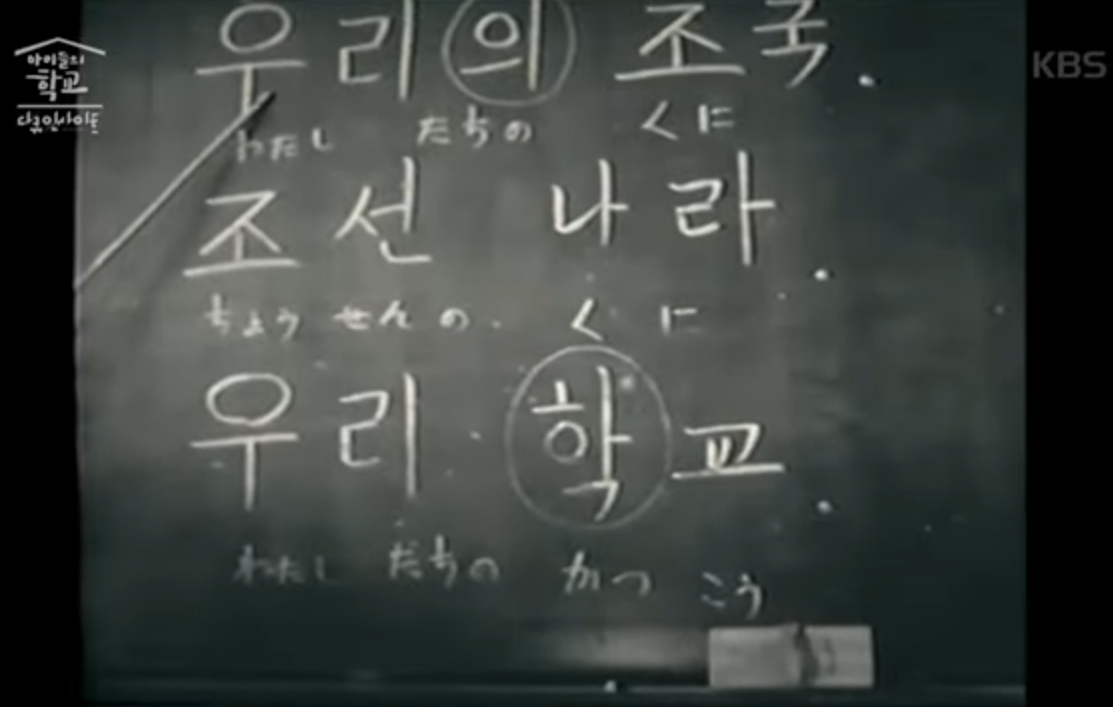 아이들의
학교
다큐인사이트
KBS
우리의 조국.
わたし たちの くに
조선 나라.
ちょうせんの. くに
우리 학교.
わたし だちの がつ こう